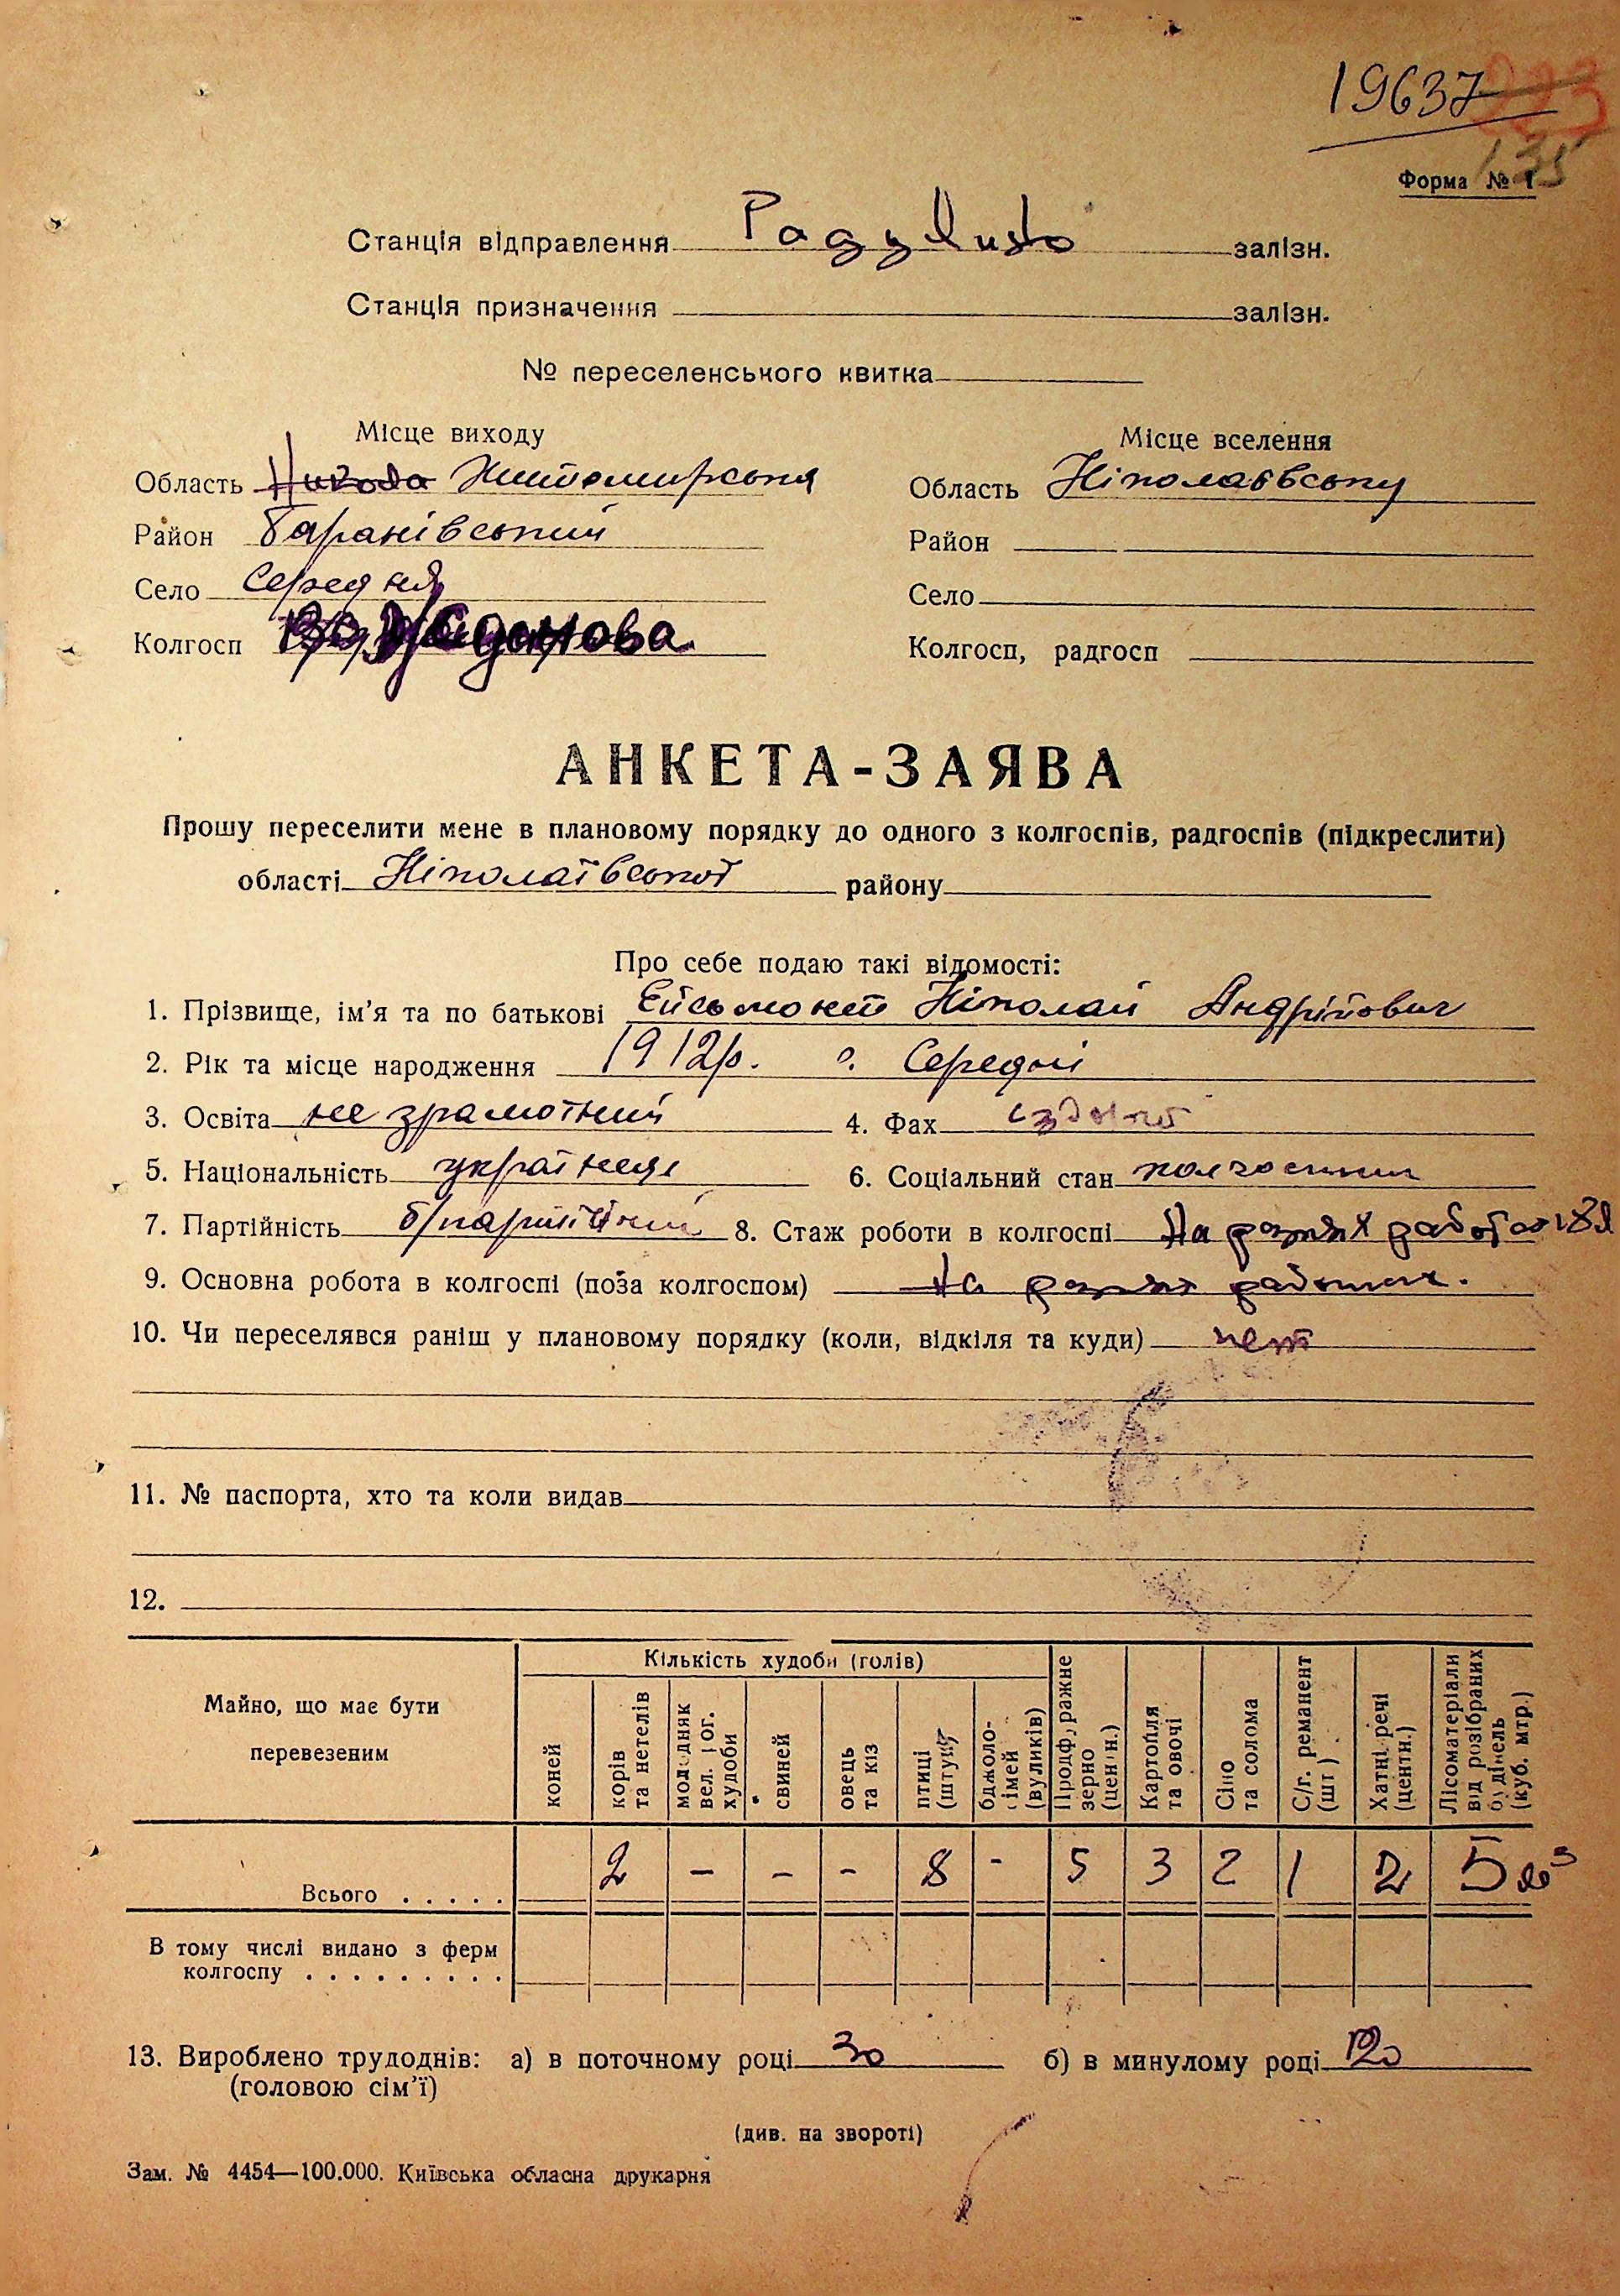 19637
Форма № 1
135
Станція відправлення Радулино залізн.
Станція призначення залізн.
№ переселенського квитка
Місце виходу
Місце вселення
Область Житомирська
Область Ніколаєвську
Район Баранівський
Район
Село Середня
Село
Колгосп Жданова
Колгосп, радгосп
АНКЕТА-ЗАЯВА
Прошу переселити мене в плановому порядку до одного з колгоспів, радгоспів (підкреслити)
області Ніколаївської району
Про себе подаю такі відомості:
1. Прізвище, ім'я та по батькові Ейсьмонт Ніколай Андрійович
2. Рік та місце народження 1912р. с. Середні
3. Освіта не грамотний 4. Фах
5. Національність українец 6. Соціальний стан колгоспник
7. Партійність б/партійний 8. Стаж роботи в колгоспі На разных работах
9. Основна робота в колгоспі (поза колгоспом) На разных работах.
10. Чи переселявся раніш у плановому порядку (коли, відкіля та куди) нет
11. № паспорта, хто та коли видав
12.
Майно, що має бути перевезеним
Кількість худоби (голів)
коней
корів та нетелів
молодняк вел. рог. худоби
свиней
овець та кіз
птиці (штук)
бджолосімей (вуликів)
Продфуражне зерно (центн.)
Картопля та овочі
Сіно та солома
С/г. реманент (шт.)
Хатні речі (центн.)
Лісоматеріали від розібраних будівель (куб. мтр.)
Всього . . . . . 2 – - - 8 - 5 3 2 1 2 5 м³
В тому числі видано з ферм
колгоспу . . . . . . . . .
13. Вироблено трудоднів: а) в поточному році 30 б) в минулому році 120
(головою сім'ї)
(див. на звороті)
Зам. № 4454—100.000. Київська обласна друкарня